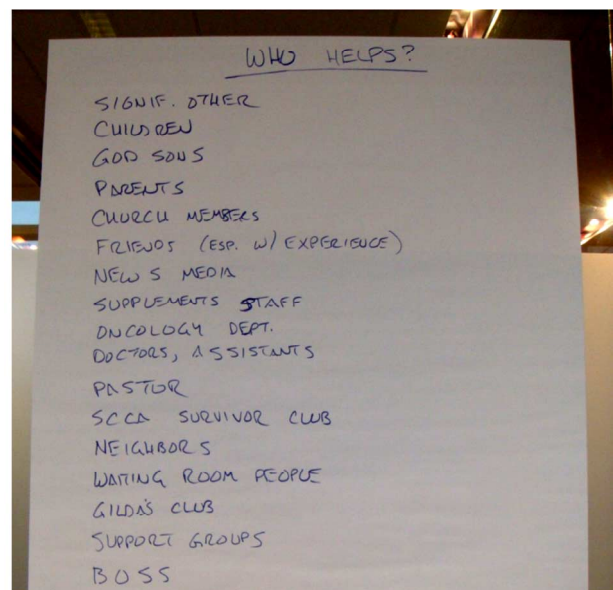 WHO HELPS?
SIGNIF. OTHER
CHILDREN
GOD SONS
PARENTS
CHURCH MEMBERS
FRIENDS (ESP. W/ EXPERIENCE)
NEWS MEDIA
SUPPLEMENTS STAFF
ONCOLOGY DEPT.
DOCTORS, ASSISTANTS
PASTOR
SCCA SURVIVOR CLUB
NEIGHBORS
WAITING ROOM PEOPLE
GILDA'S CLUB
SUPPORT GROUPS
BOSS